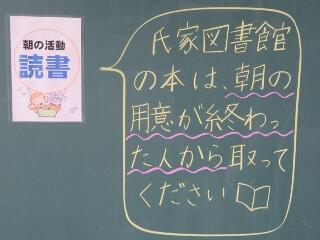 朝の活動
読書
氏家図書館
の本は、朝の
用意が終わっ
た人から取って
ください